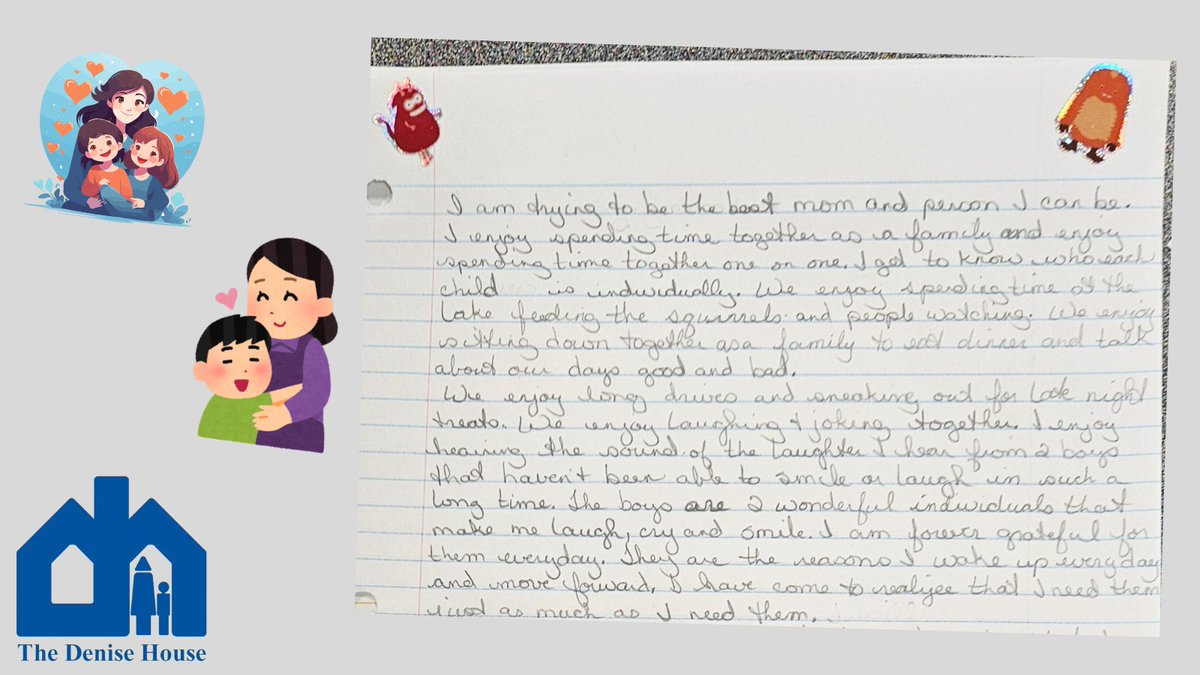 I am trying to be the best mom and person I can be.
I enjoy spending time together as a family and enjoy
spending time together one on one. I get to know who each
child is individually. We enjoy spending time at the
Lake feeding the squirrels and people watching. We enjoy
sitting down together as a family to eat dinner and talk
about our days good and bad.
We enjoy long drives and sneaking out for late night
treats. We enjoy laughing & joking together. I enjoy
hearing the sound of the laughter I hear from 2 boys
that haven't been able to smile or laugh in such a
long time. The boys are 2 wonderful individuals that
make me laugh, cry and smile. I am forever grateful for
them everyday. They are the reasons I wake up everyday
and move forward. I have come to realize that I need them
just as much as I need them.
The Denise House